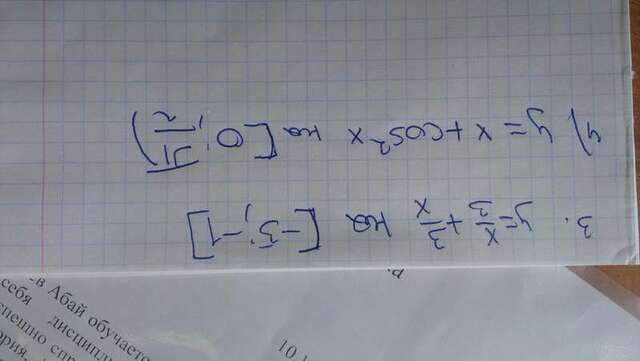 3. y = x/3 + 3/x на [-5; -1]
4) y = x + cos²x на [0; π/2)
в Абай обучаетс
себя дисципли
спешно спр
гория.
10.1